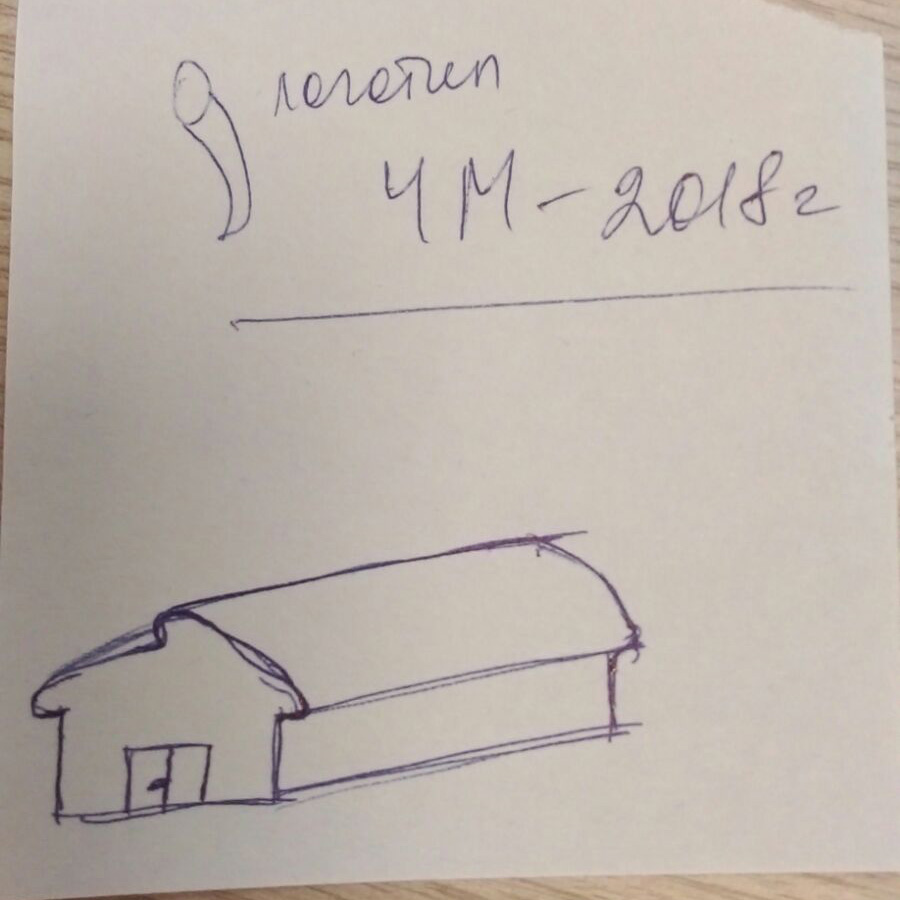 логотип
ЧМ-2018г